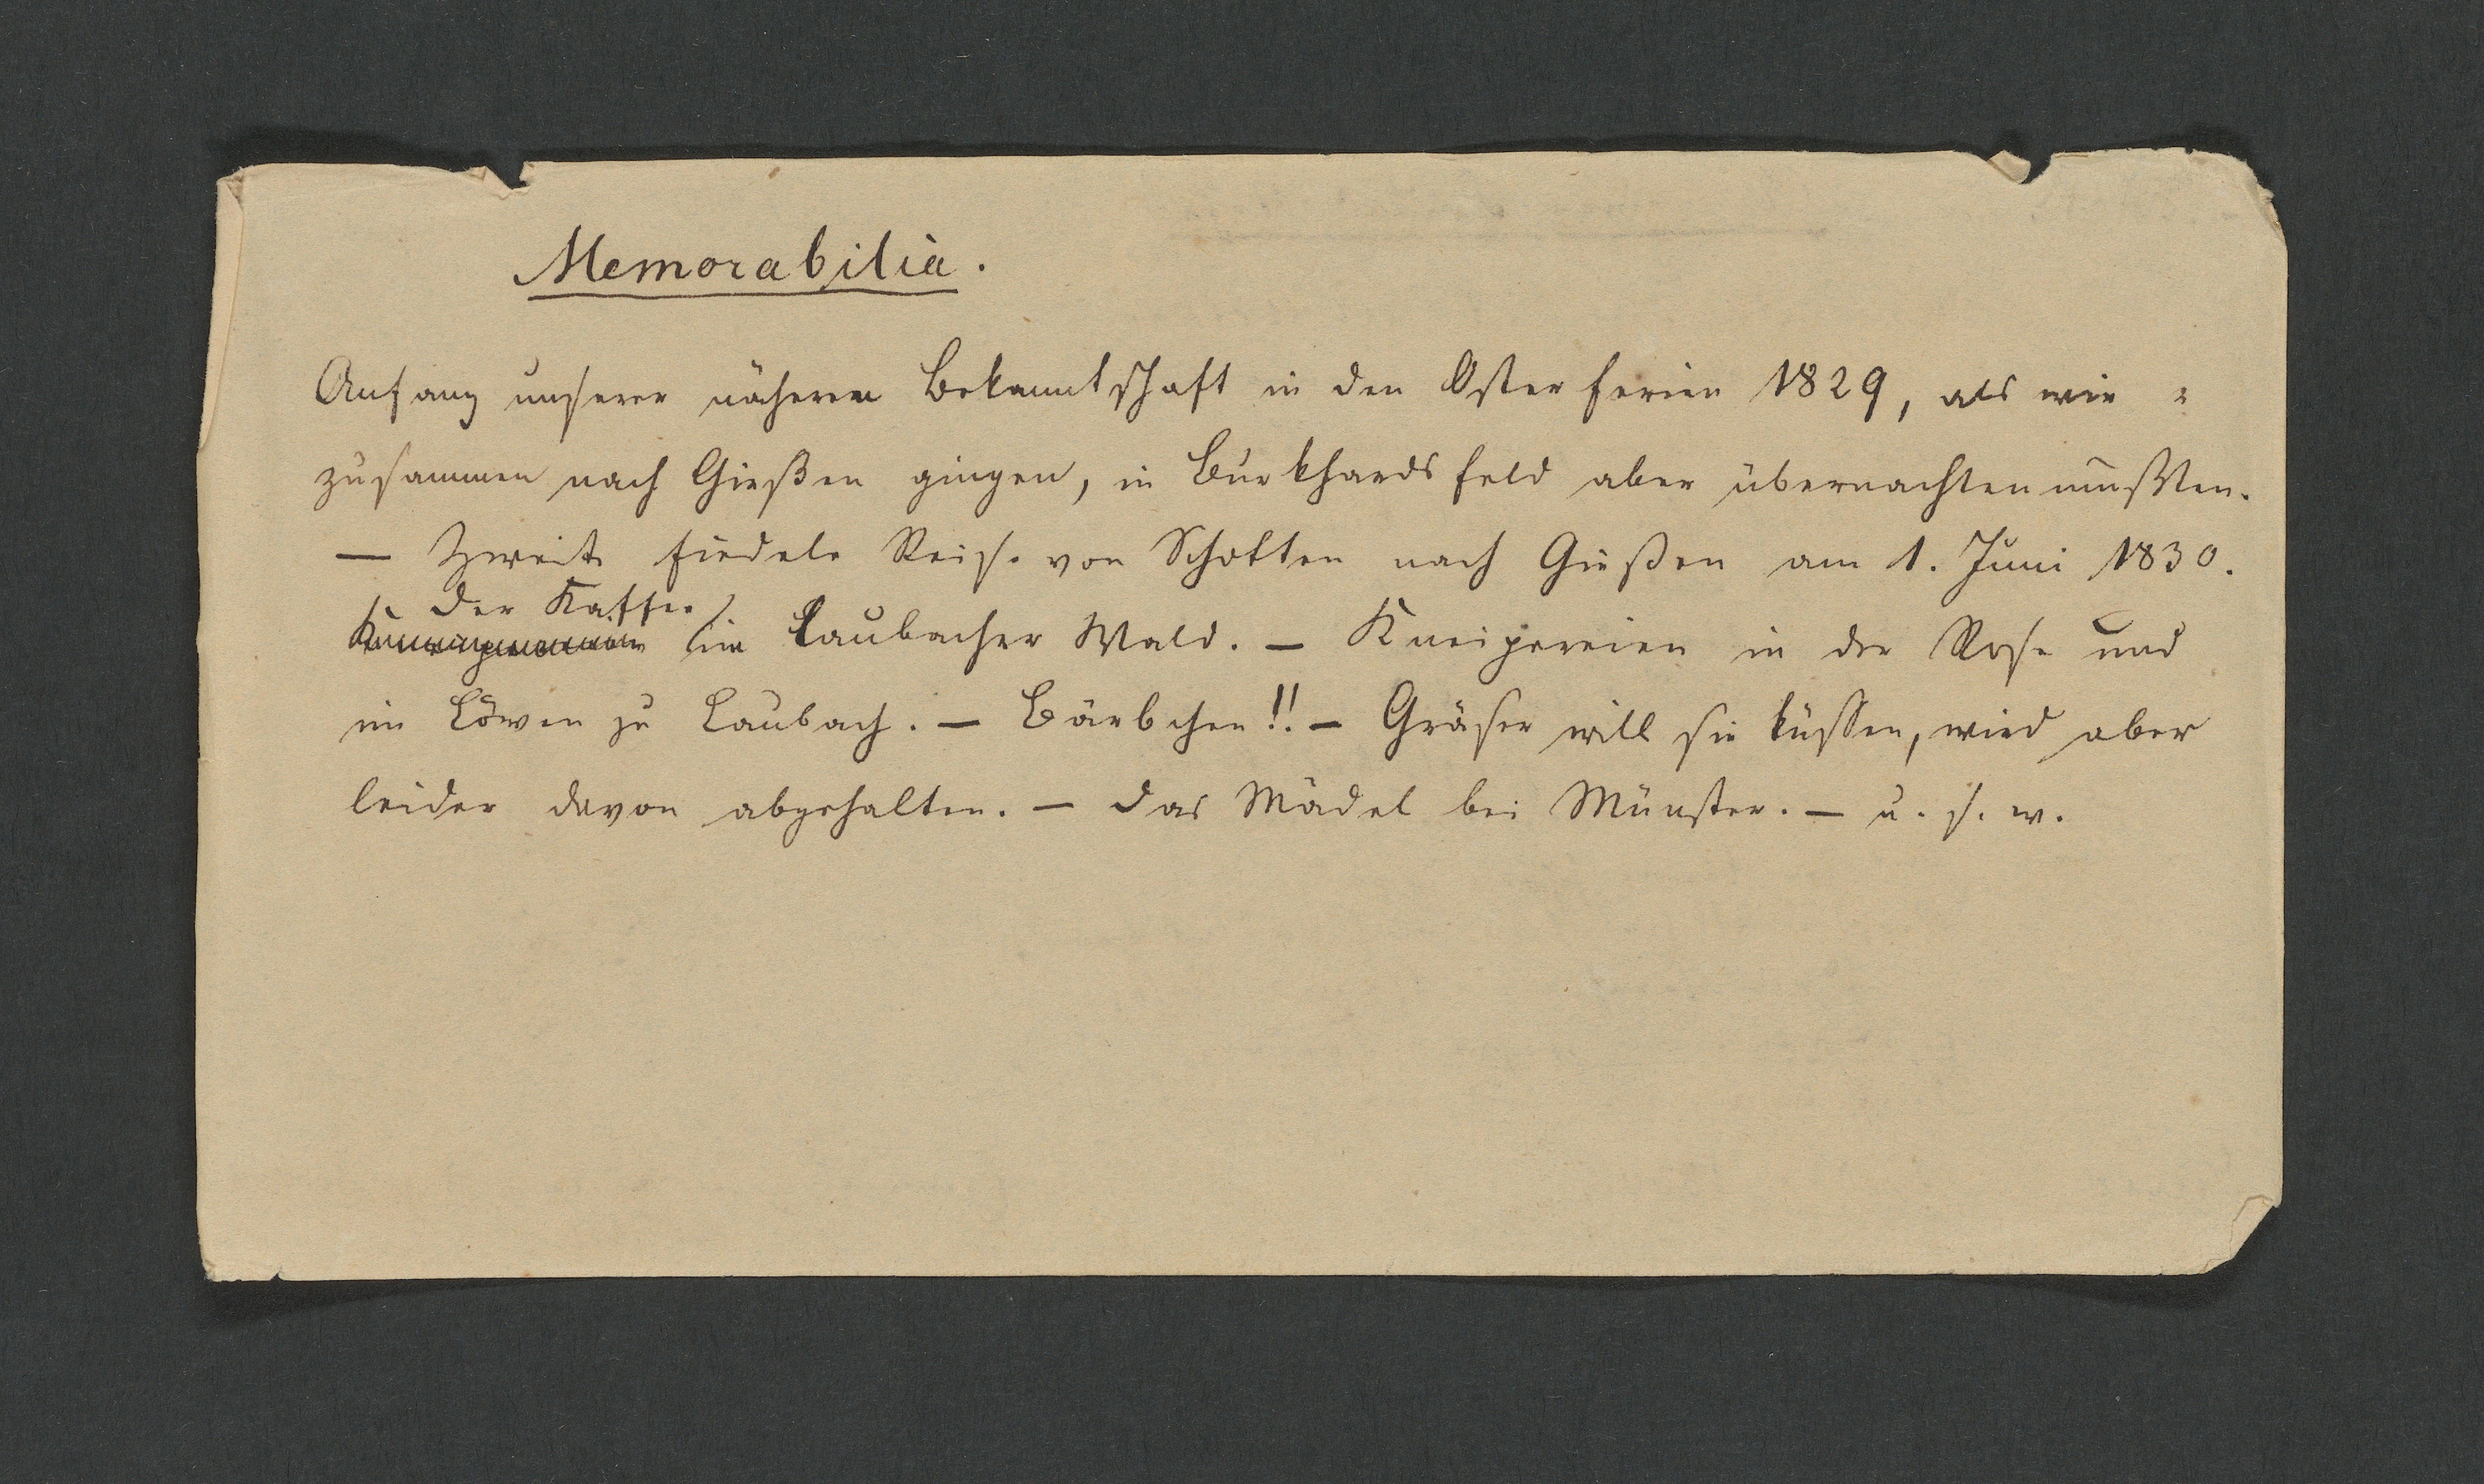 Memorabilia.
Anfang unserer näheren Bekanntschaft in den Osterferien 1829, als wir
zusammen nach Gießen gingen, in Burkhardsfeld aber übernachten mußten.
— Zweite fiedele Reise von Schotten nach Gießen am 1. Juni 1830.
der Kaffee
Kneipereien im Laubacher Wald. — Kneipereien in der Rose und
im Löwen zu Laubach. — Bärbchen!! — Gräser will sie küssen, wird aber
leider davon abgehalten. — das Mädel bei Münster. — u. s. w.